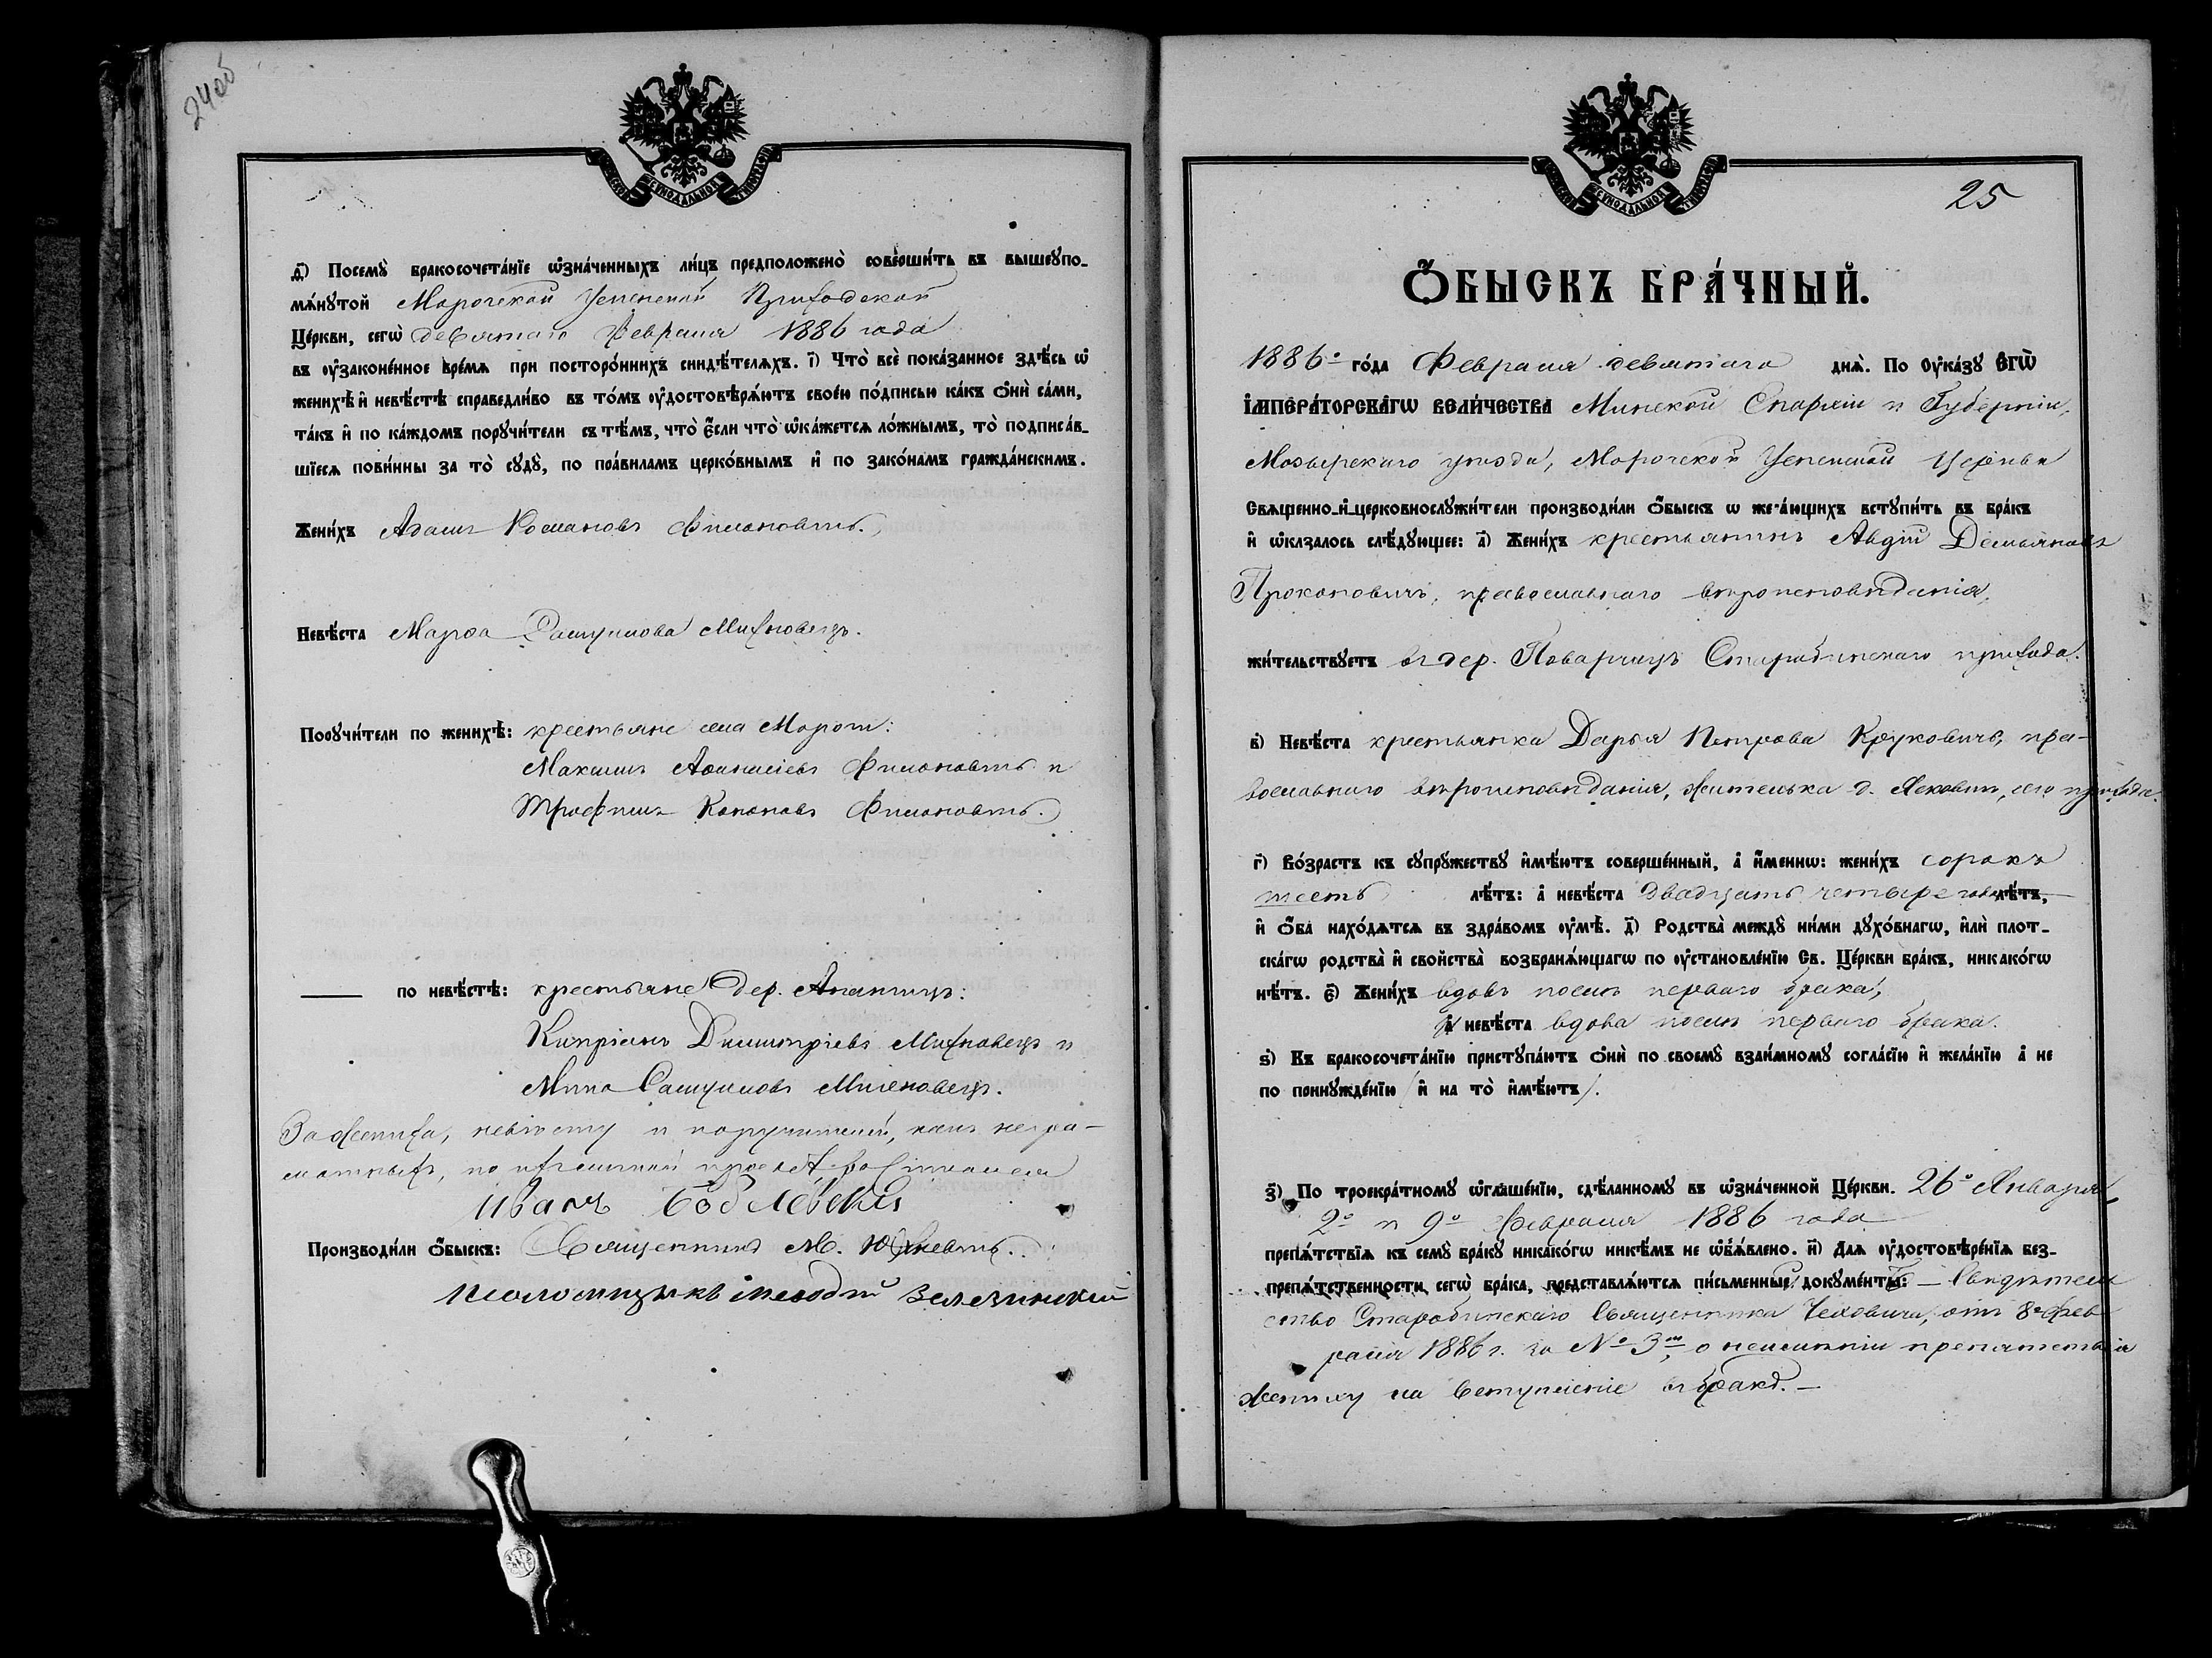 24об
ѳ҃) Посемꙋ̀ бракосочета́нїе ѡ҆зна́ченныхъ ли́цъ предположено̀ соверши́ть въ вышеꙋпо-
мѧ́нꙋтой Морочской Успенской Приходской
Це́ркви, сегѡ̀ девятаго Февраля 1886 года
въ ᲂу҆законе́нное вре́мѧ при посторо́ннихъ свидѣ́телѧхъ. і҃) Что̀ всѐ пока́занное здѣ́сь ѡ҆
женихѣ̀ и҆ невѣ́стѣ справедли́во въ то́мъ ᲂу҆достовѣрѧ́ютъ свое́ю по́дписью ка́къ ѻ҆нѝ са́ми,
та́къ и҆ по ка́ждомъ порꙋчи́тели съ тѣ́мъ, что̀ є҆́сли что̀ ѡ҆ка́жетсѧ ло́жнымъ, то̀ подписа́в-
шїесѧ пови́нны за то̀ сꙋдꙋ̀, по пра́виламъ церко́внымъ и҆ по зако́намъ гражда́нскимъ.
Жени́хъ Адамъ Романовъ Филоновичъ.
Невѣ́ста Марѳа Самуилова Михновецъ.
Порꙋчи́тели по женихѣ̀: крестьяне села Морочи:
Максимъ Аѳанасіевъ Филоновичъ и
Трофимъ Кононовъ Филоновичъ.
по невѣ́стѣ: крестьяне дер.
Кипріанъ Димитріевъ Михновецъ и
Мина Самуиловъ Михновецъ.
За жениха, невѣсту и поручителей, какъ негра-
мотныхъ, по ихъ личной просьбѣ росписался
Иванъ
Производи́ли ѻ҆́быскъ: Священникъ М. Юхневичъ.
Псаломщикъ Меѳодій Зелезинскій
25
Ѻ҆БЫСКЪ БРА́ЧНЫЙ.
1886º го́да Февраля девятаго днѧ̀. По Оу҆ка́зꙋ Є҆ГѠ̀
И҆МПЕРА́ТОРСКАГѠ ВЕЛИ́ЧЕСТВА Минской Епархіи и Губерніи,
Мозырскаго уѣзда, Морочской Успенской Церкви
Свѧще́нно-и҆-церковнослꙋжи́тели производи́ли ѻ҆́быскъ ѡ жела́ющихъ встꙋпи́ть въ бра́къ
и҆ ѡ҆каза́лось слѣ́дꙋющее: а҃) Жени́хъ крестьянинъ Авдій Демьяновъ
Прокоповичъ, православнаго вѣроисповѣданія,
жи́тельствꙋетъ въ дер. Поварчицъ Старобинскаго прихода.
в҃) Невѣ́ста крестьянка Дарья Петрова Круковичъ, пра-
вославнаго вѣроисповѣданія, жителька д. Ясковичъ, сего прихода.
г҃) Во́зрастъ къ сꙋпрꙋ́жествꙋ и҆мѣ́ютъ соверше́нный, а҆ и҆́меннѡ: жени́хъ сорокъ
шесть лѣ́тъ: а҆ невѣ́ста двадцать четыре года лѣ́тъ,
и҆ ѻ҆́ба нахо́дѧтсѧ въ здра́вомъ ᲂу҆мѣ̀. д҃) Родства̀ междꙋ̀ ни́ми дꙋхо́внагѡ, и҆лѝ плот-
ска́гѡ родства̀ и҆ сво́йства возбранѧ́ющагѡ по ᲂу҆становле́нїю Св. Це́ркви бра́къ, никако́гѡ
нѣ́тъ. є҃) Жени́хъ вдовъ послѣ перваго брака,
а҆ невѣ́ста вдова послѣ перваго брака.
ѕ҃) Къ бракосочета́нїю пристꙋпа́ютъ ѻ҆нѝ по своемꙋ̀ взаи́мномꙋ согла́сїю и҆ жела́нїю а҆ не
по принꙋжде́нїю (и҆ на то̀ и҆мѣ́ютъ).
з҃) По троекра́тномꙋ ѡ҆глаше́нїю, сдѣ́ланномꙋ въ ѡ҆зна́ченной Це́ркви. 26º Января,
2º и 9º Февраля 1886 года
препѧ́тствїѧ къ семꙋ̀ бра́кꙋ никако́гѡ нике́мъ не ѡ҆б̾ѧ́влено. и҃) Длѧ ᲂу҆достовѣре́нїѧ без-
препѧ́тственности сегѡ̀ бра́ка, представлѧ́ютсѧ пи́сьменный докуме́нтъ: — Свидѣтель
ство Старобинскаго Священника Чеховича, отъ 8º Фев
раля 1886 г. за № 3мъ, о неимѣніи препятствія
жениху на вступленіе въ бракъ. —